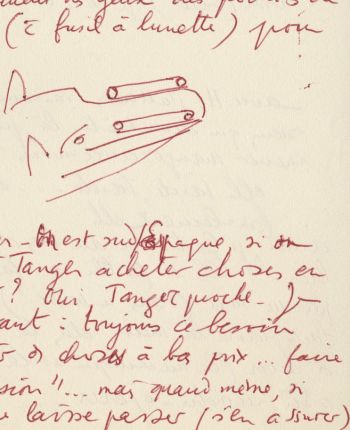 (à fusil à lunette) pour
est sur Espagne, si on
Tanger acheter choses en
? Oui Tanger proche -) -
ant : toujours ce besoin
choses à bas prix... faire
sion"... mais quand même, si
e laisse passer (s'en assurer)